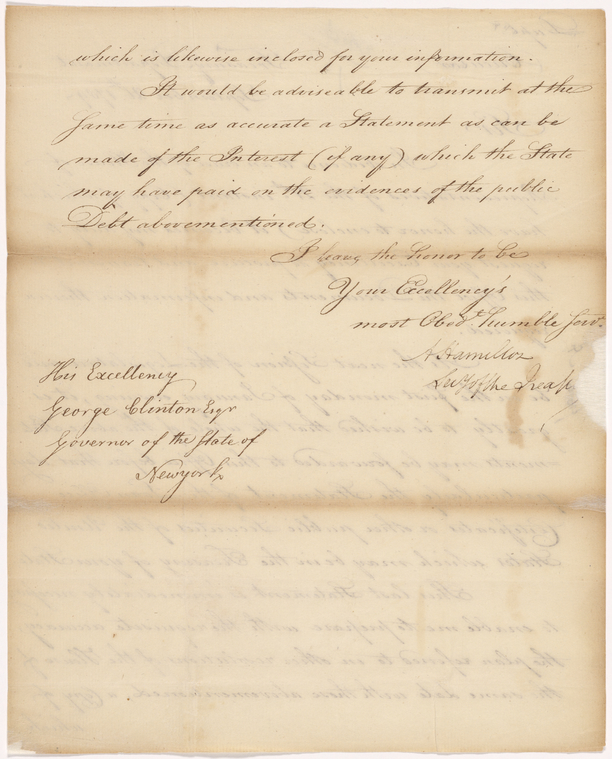 which is likewise inclosed for your information.
It would be adviseable to transmit at the
same time as accurate a Statement as can be
made of the Interest (if any) which the State
may have paid on the evidences of the public
Debt abovementioned.
I have the honor to be
Your Excellency's
most Obedt humble Servt.
A Hamilton
Secy of the Treasy
His Excellency
George Clinton Esqr
Governor of the State of
New york